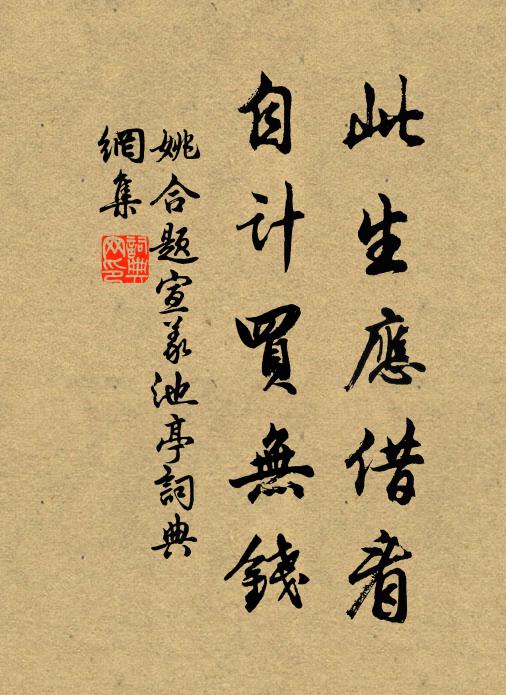 此生應借看
自計買無錢
姚合題宣義池亭詞典
網集
詞典
网印